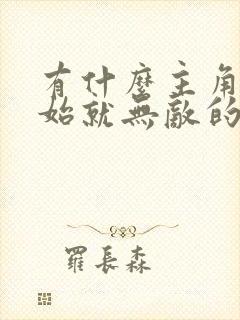 有什麼主角
始就無敵的
羅長森